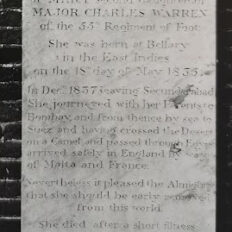 MAJOR CHARLES WARREN
of the 55th Regiment of Foot
She was born at Bellary
in the East Indies
on the 18th day of May 1835.
In Decr 1837 leaving
She journeyed with her Parents to
Bombay, and from thence by sea to
Suez and having crossed the Desert
on a Camel and passed through Egypt
arrived safely in England
of Malta and France.
Nevertheless it pleased the Almighty
that she should be early removed
from this world
She died after a short illness